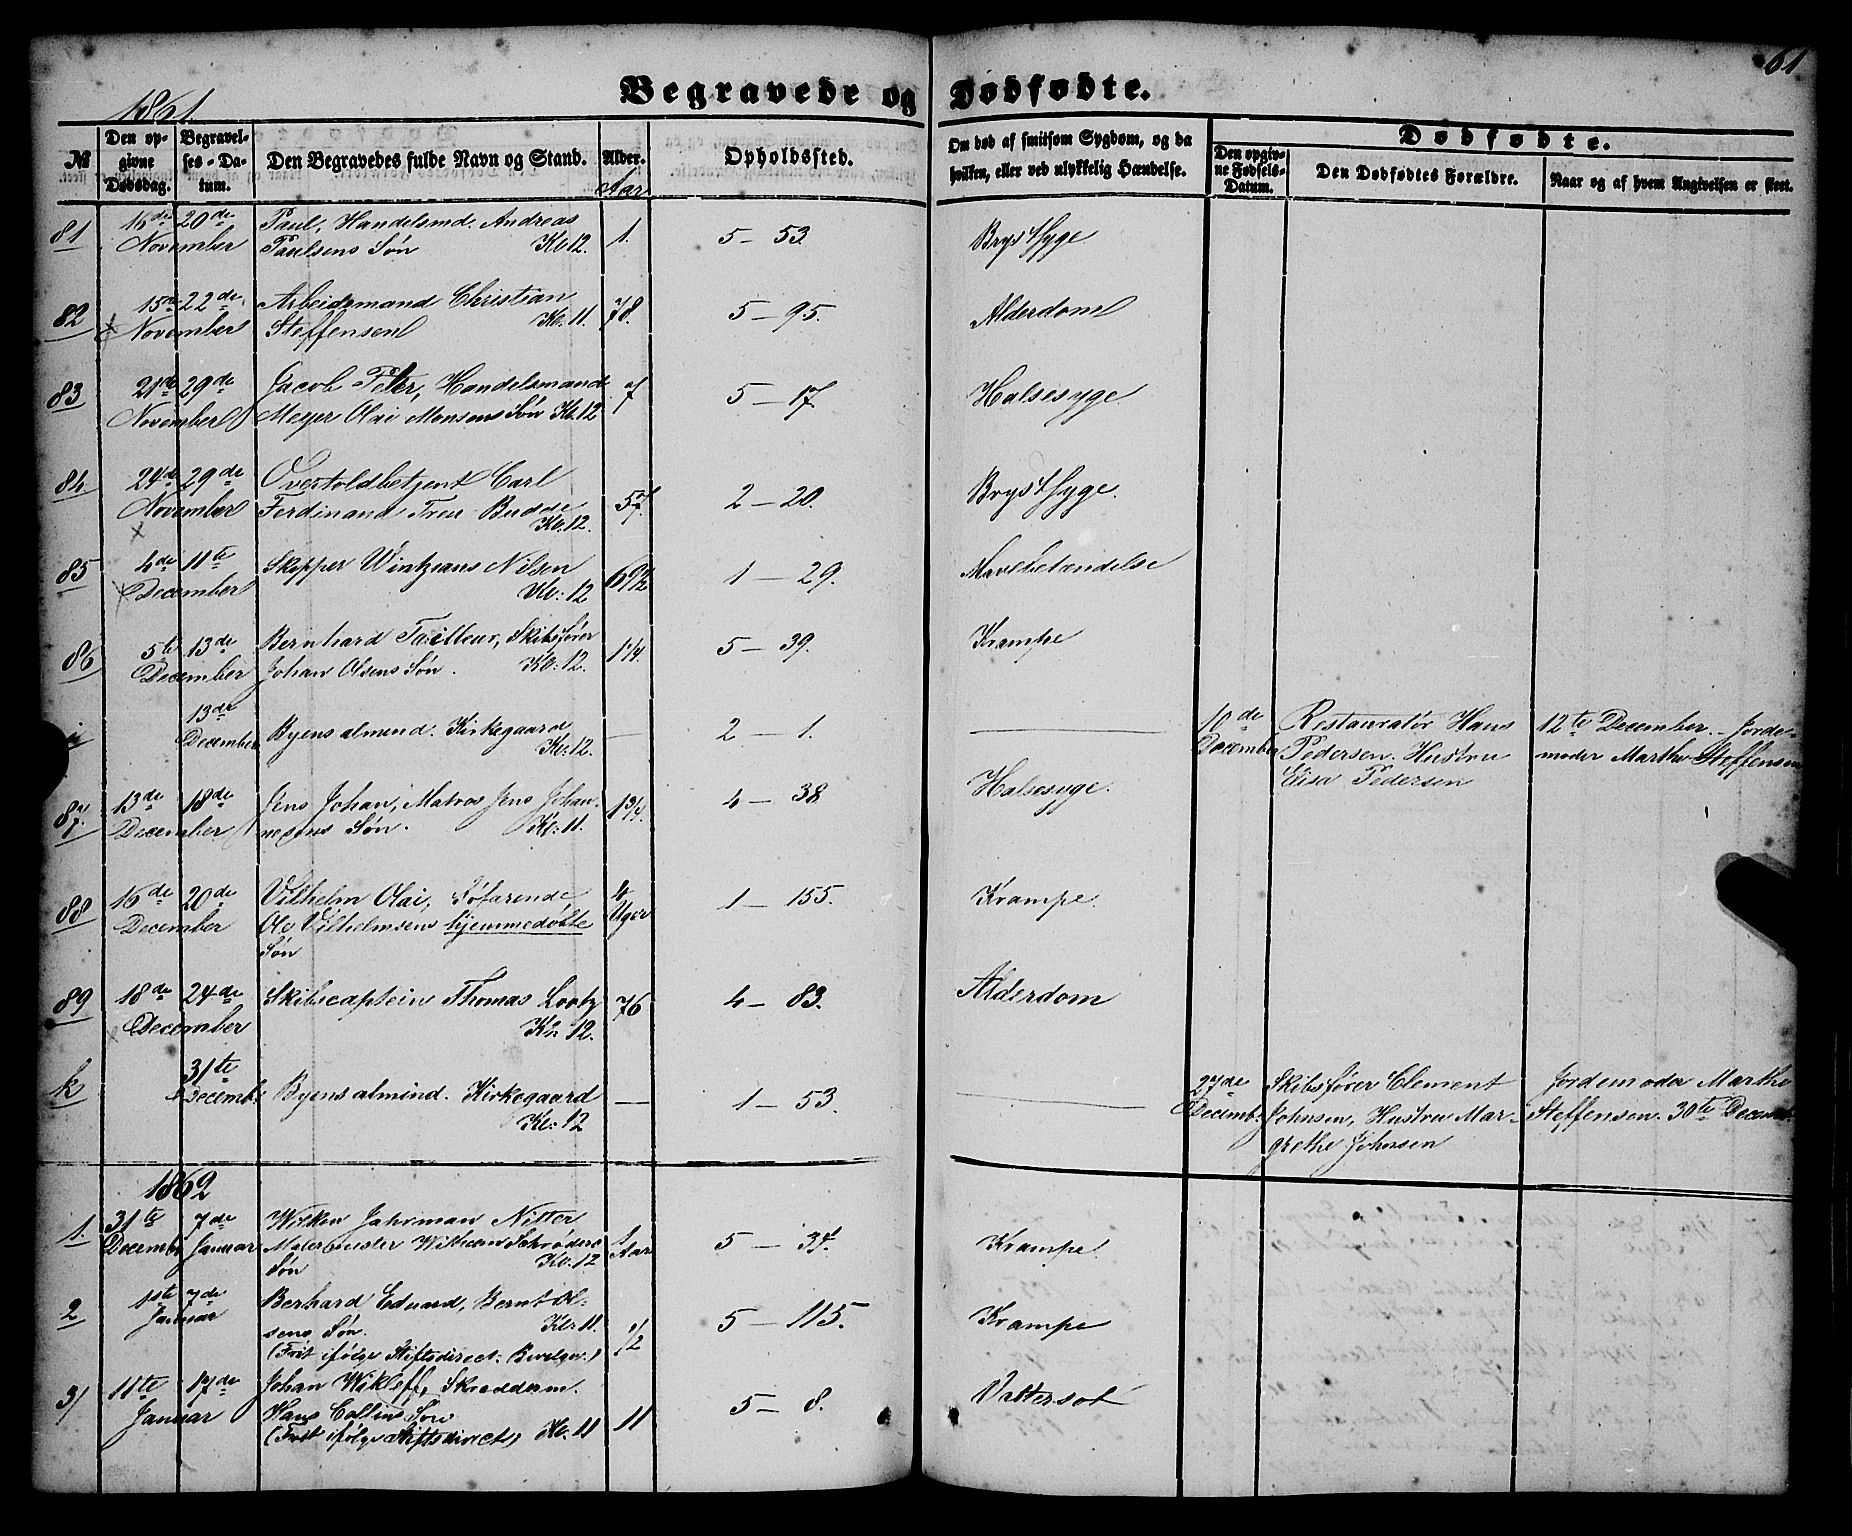 61
Begravede og Dødfødte.
1861
No
Den opgivne Dødsdag.
Begravelses-Datum.
Den Begravedes fulde Navn og Stand.
Alder.
Aar
Opholdssted.
Om død af smitsom Sygdom, og da hvilken, eller ved ulykkelig Hændelse.
Dødfødte.
Den opgivne Fødsels-Datum.
Den Dødfødtes Forældre.
Naar og af hvem Angivelsen er skeet.
81 16de 20de Paul, Handelsmd. Andreas 1. 5 — 53. Brystsyge
November Paulsens Søn Kl. 12.
82 15de 22de Arbeidsmand Christian 78. 5 — 95. Alderdom
November Steffensen Kl. 11.
83 21de 29de Jacob Peter, Handelsmand 7 5 — 17 Halsesyge
November Meyer Olai Monsens Søn Kl. 12
84 24de 29de Overtoldbetjent Carl 57. 2 — 20. Brystsyge.
November Ferdinand Treu Budde Kl. 12.
85 4de 11te Skipper Nilsen 69 1/2 1 — 29. Mavebetændelse
December Kl. 12
86 5te 13de Bernhard Tailleur, Skibsfører 1 1/4. 5 — 39. Krampe
December Johan Olsens Søn. Kl. 12.
i 13de Byens almind. Kirkegaard — 2 — 1. — 10de Restauratør Hans 12te December. Jorde-
December Kl. 12. December Pedersen. Hustru moder Marthe Steffensen
Elise Pedersen
87. 13de 18de Jens Johan, Matros Jens Johan- 1 3/4. 4 — 38 Halsesyge.
December nesens Søn. Kl. 11.
88 16de 20de Vilhelm Olai, Søfarende 4 1 — 155. Krampe.
December Ole Vilhelmsens hjemmedøbte Uger
Søn
89 18de 24de Skibscaptein Thomas Lootz 76 4 — 83. Alderdom
December Kl. 12.
k 31te Byens almind. Kirkegaard — 1 — 53. — 27de Skibsfører Clement Jordemoder Marthe
Decemb. Kl. 12 Decemb. Johnsen, Hustru Mar- Steffensen. 30te Decemb.
grethe Johnsen
1862
1. 31te 7de Wilken Jahrman Nitter 5 — 34. Krampe.
Decembr Januar Malermester Wilhelm Schrøders Aar
Søn Kl. 12
2 1ste 7de Berhard Eduard, Bernt Ol- 5 — 115. Krampe
Januar sens Søn. Kl. 11. 1/2
(Frit ifølge Stiftsdirect: Bevilgn.)
3) 11te 17de Johan Wikleff, Skrædderm. 5 — 8. Vattersot
Januar Hans Collins Søn 11
(Frit ifølge Stiftsdirect) Kl. 11